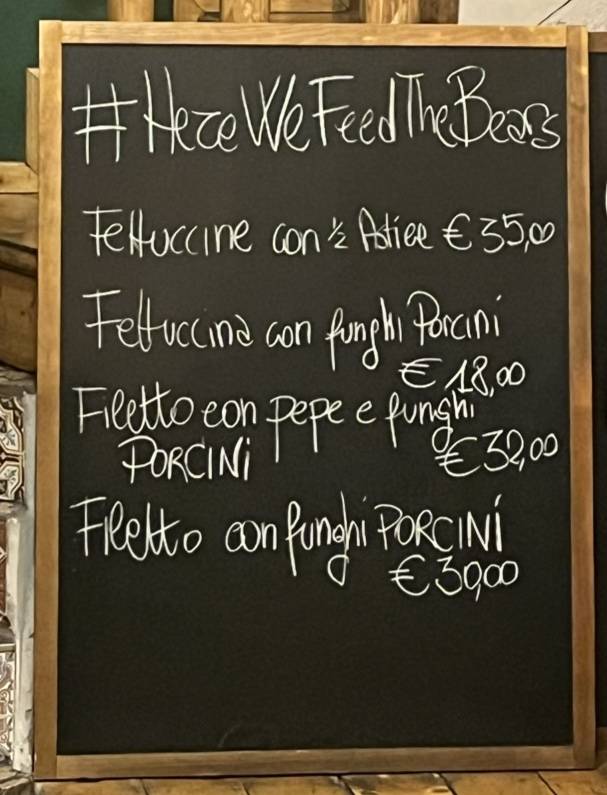 #HereWeFeedTheBears
Fettuccine con ½ Astice € 35,00
Fettuccina con funghi Porcini
€ 18,00
Filetto con pepe e funghi
PORCINI €32,00
Filetto con funghi PORCINI
€ 30,00